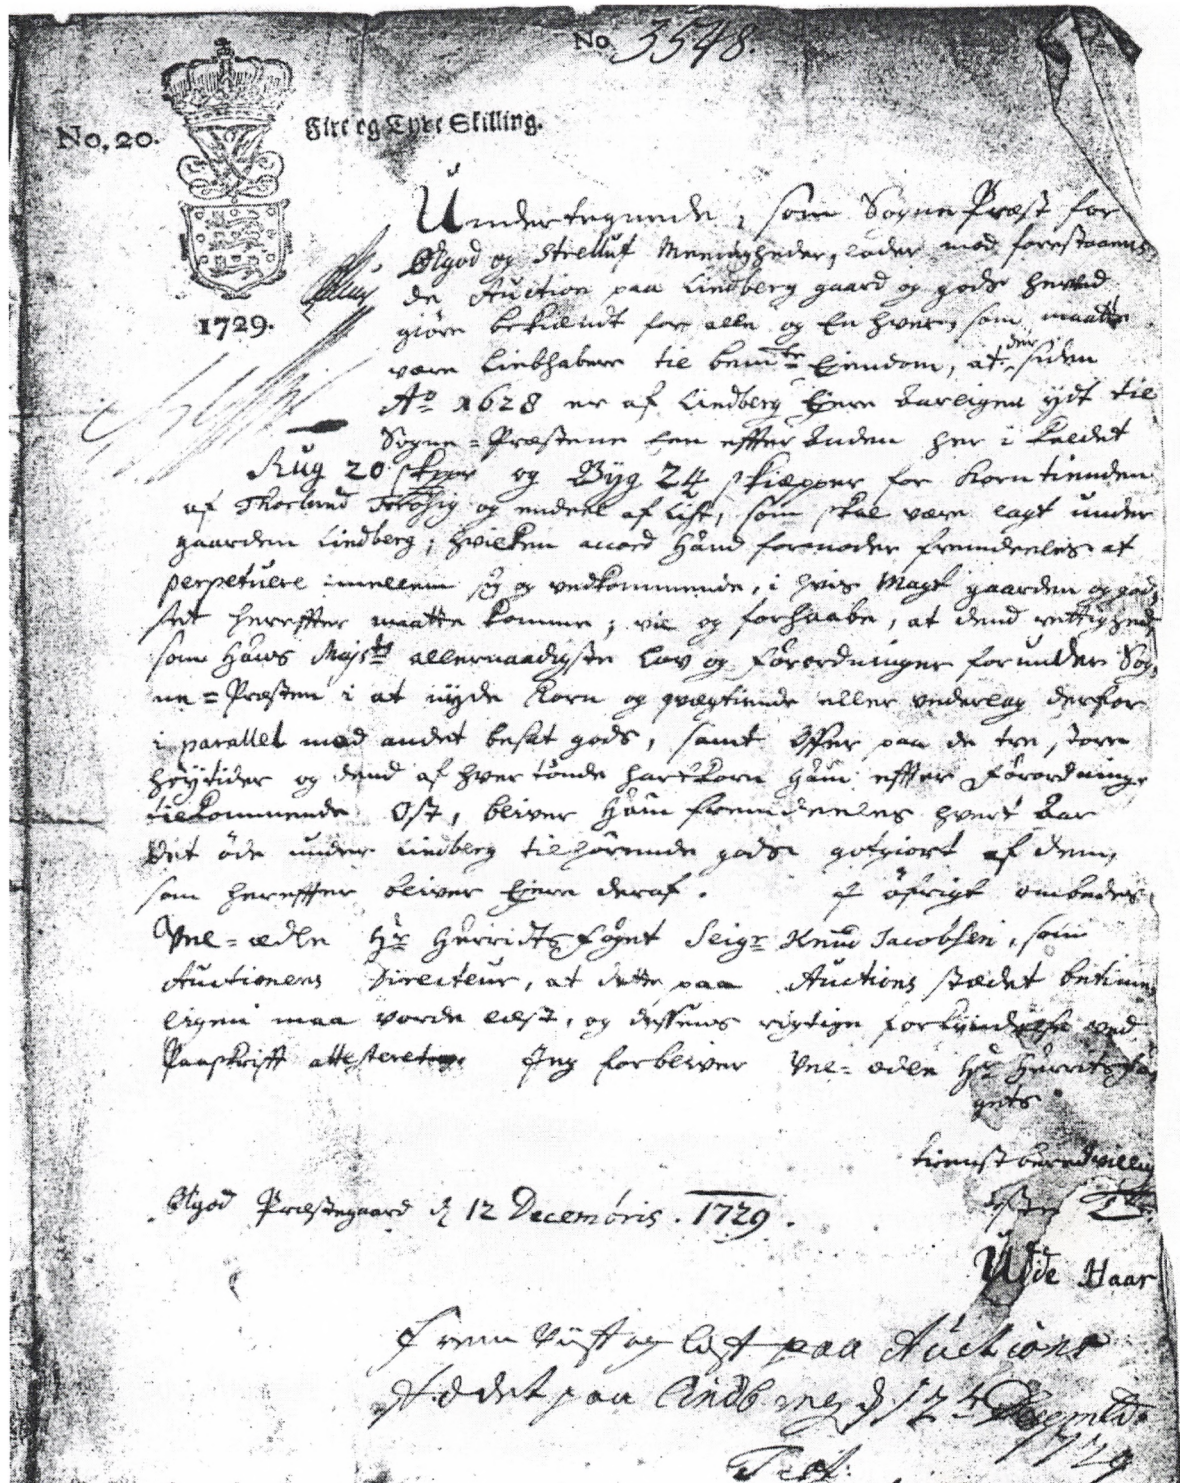 No. 3548.
No. 20.
Fire og Tyve Skilling.
1729.
Undertegnede, som Sogne Præst for
Ølgod og Strelluf Meenigheder, lader med forestaaen-
de Auction paa Lindberg gaard og gods herved
giøre bekiændt for alle og En hver, som maatte
være Liebhabere til bemte Ejendom, at der siden
Ao 1628 er af Lindberg Ejere aarligen ydt til
Sogne-Præstene een effter anden her i kaldet
Rug 20 skpper og Byg 24 skiæpper for Korntienden
af Thorlund og endeel af List, som skal være lagt under
gaarden Lindberg; hvilken accord hand formoder fremdeeles at
perpetuere imellem sig og vedkommende, i hvis Magt gaarden og god-
set hereffter maatte komme; vil og forhaabe, at dend rettighed
som Hans Majsts allernaadigste Lov og Forordninger forunder Sog-
ne-Præsten i at nyde Korn og qvægtiende eller vederlag derfor
i parallel med andet besat gods, samt Offer paa de tre store
høytider og dend af hver tønde hartkorn ham effter Forordning
tilkommende Ost, bliver ham fremdeeles hvert Aar
Det øde under Lindberg tilhørende gods gotgiort af dem,
som hereffter bliver Ejere deraf. J øfrigt ombedes
Vel-ædle Hr Herridtsfoget Seigr Knud Jacobsen, som
Auctionens Directeur, at dette paa Auctions stædet betime-
ligen maa vorde læst, og dessens rigtige forkyndelse ved
Paaskrifft attesteret. Jeg forbliver Vel-ædle Hr Herritsfo-
gets
tienstberedvillig
Ølgod Præstegaard d 12 Decembris. 1729.
Udde Haar
Frem viist og læst paa Auctions
stædet paa Lindberg d 12te Decembr
1729
Test: